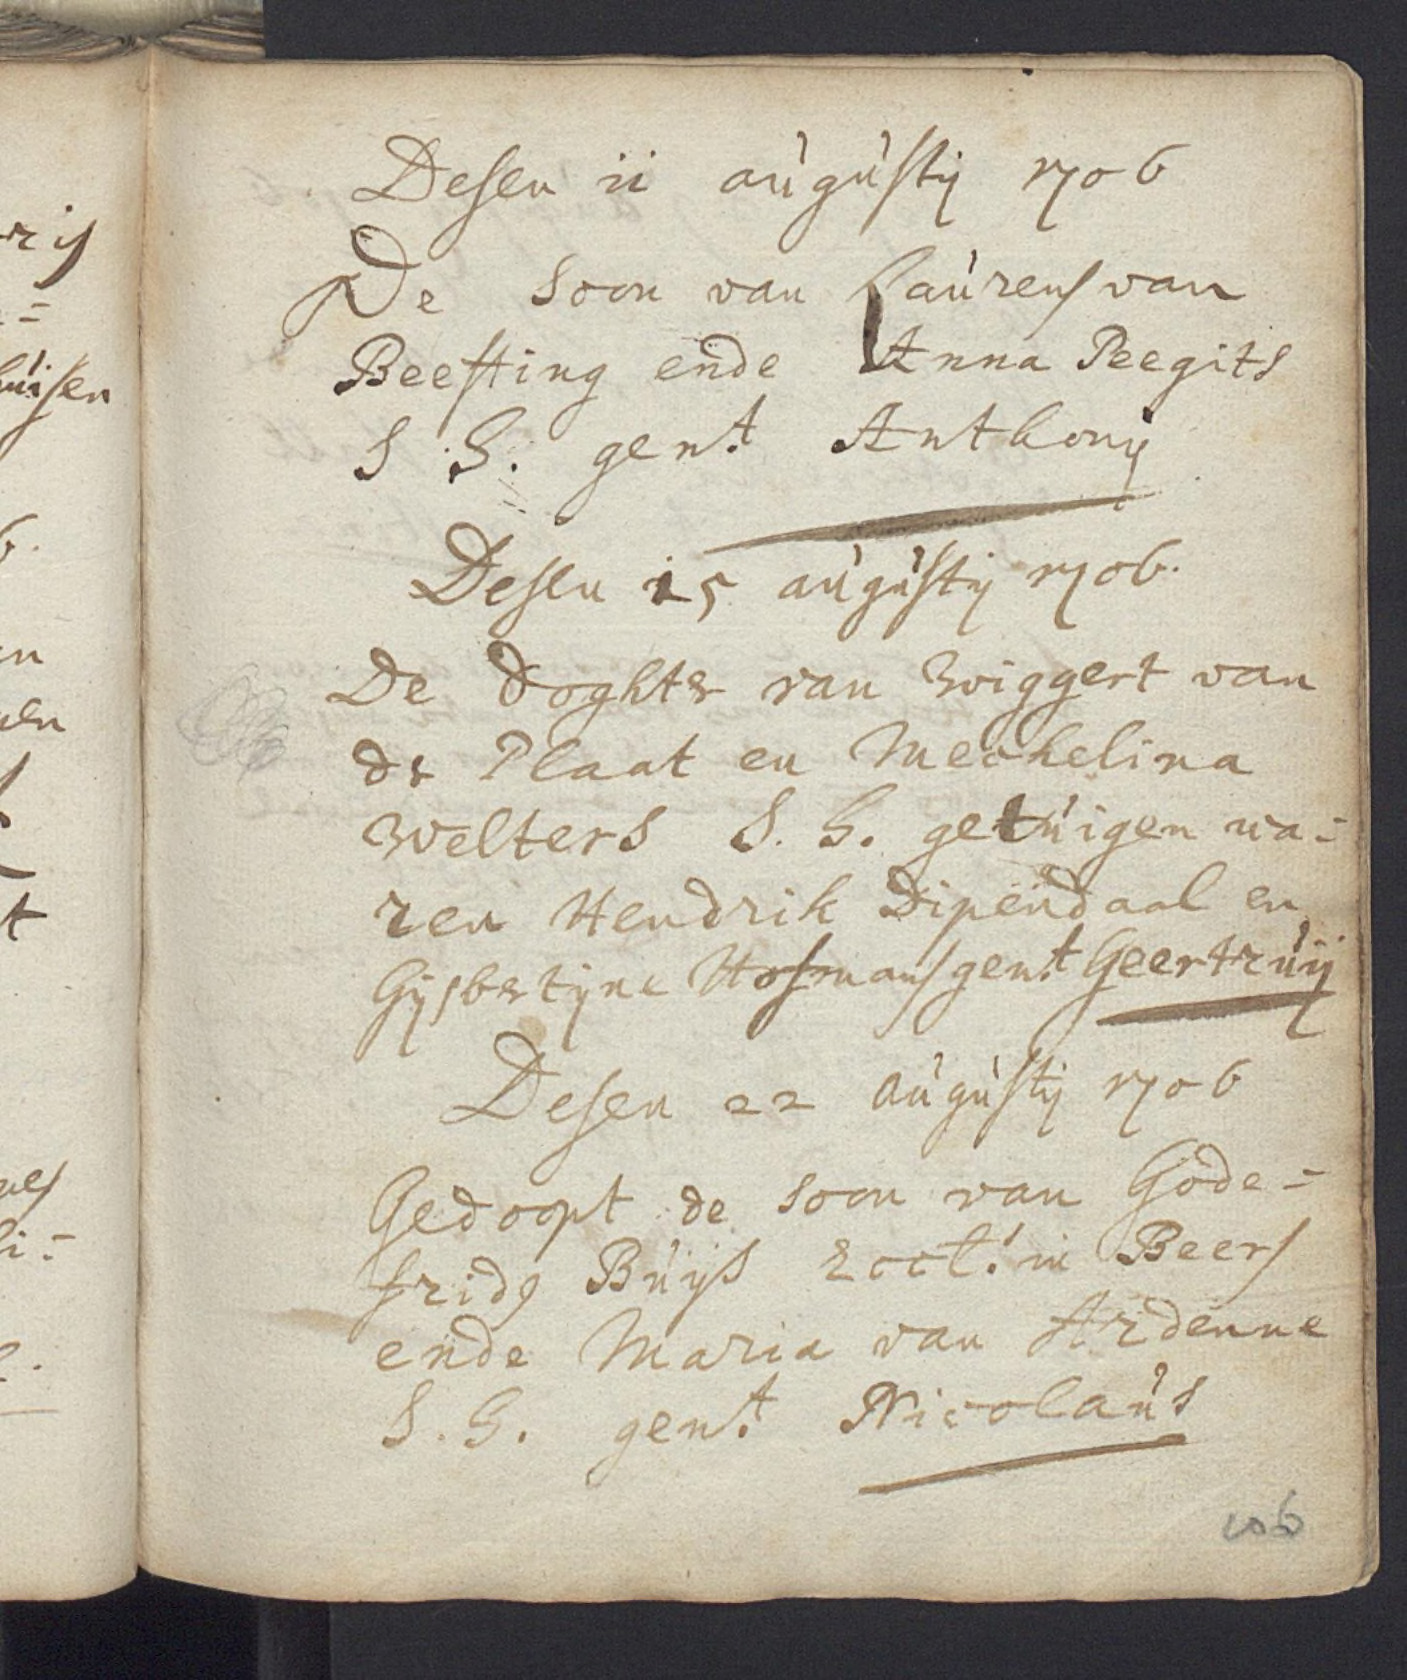 Desen ii augustij 1706
De soon van Laurens van
Beesting ende Anna Peegits
S S. gen.t Anthonij
Desen 15 augustij 1706.
De Doghter van Wiggert van
de Plaat en Mechelina
Welters S. S. getuigen wa=
ren Hendrik Dipendaal en
Gijsbertijne Hofmans gen.t Geertruij
Desen 22 augustij 1706
Gedoopt de soon van Gode=
frid9 Buijs in Beers
ende Maria van Ardenne
S. S. gen.t Nicolaus
106